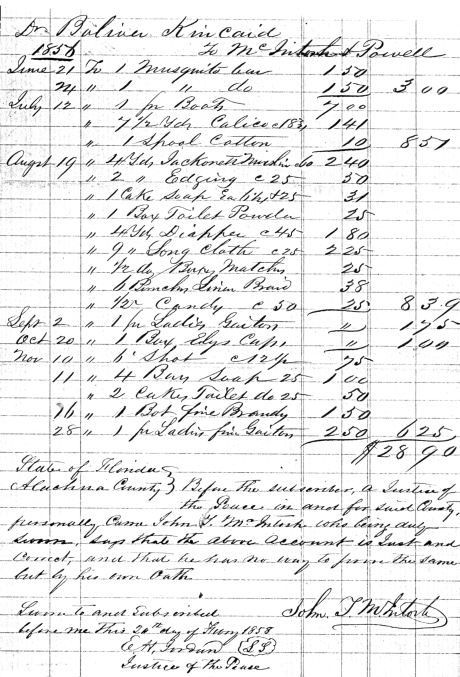 Dr Boliver Kincaid
1856 To McIntosh & Powell
June 21 To 1 Musquito bar 150
24 " 1 " do 150 300
July 12 " 1 pr Boots 700
" 7 1/2 Yds Calico c 18 3/4 141
" 1 Spool Cotton 10 851
Augst 19 " 4 Yds Jackonett Muslin 60 240
" 2 " Edging c 25 50
" 1 Cake Soap 25 31
" 1 Box Toilet Powder 25
" 4 Yds Diapper c 45 180
" 9 " Long Cloth c 25 225
" 1/2 dz Boxes Matches 25
" 6 Bunches Linen Braid 38
" 1/2 Candy c 50 25 839
Sept 2 " 1 pr Ladies Gaiters " 175
Oct 20 " 1 Box Elys Caps " 100
Nov 10 " 6 Shot c 12 1/2 75
11 " 4 Bars Soap 25 100
" 2 Cakes Toilet do 25 50
16 " 1 Bot fine Brandy 150
28 " 1 pr Ladies fine Gaiters 250 625
$28 90
State of Florida }
Alachua County } Before the subscriber, a Justice of
the Peace in and for said County,
personally Came John T. McIntosh who being duly
sworn, says that the above Account is Just and
Correct, and that he has no way to prove the same
but by his own Oath
Sworn to and Subscribed John. T. McIntosh
before me this 20th day of Feury 1858
E. H. Jordan (LS)
Justice of the Peace